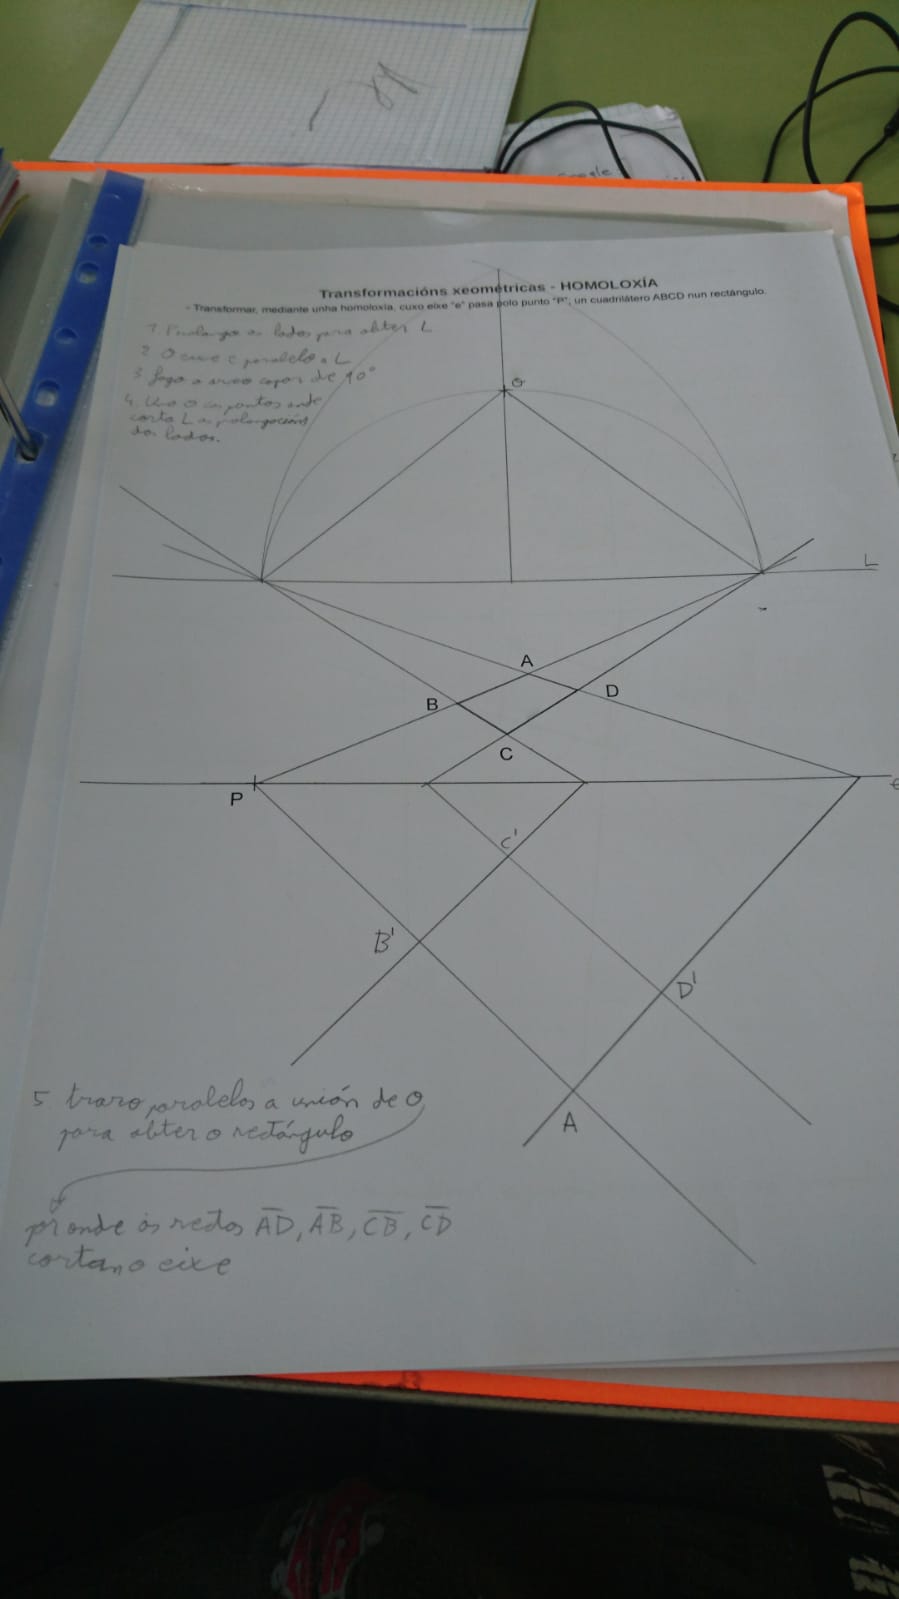 Google
Transformacións xeométricas - HOMOLOXÍA
- Transformar, mediante unha homoloxía, cuxo eixe "e" pasa polo punto "P", un cuadrilátero ABCD nun rectángulo.
1. Prolongo os lados para obter L
2 O eixe é paralelo a L
3. fago o arco capaz de 90°
4. Uno O cos puntos onde
corta L as prolongacións
dos lados.
O
L
A
B
D
C
P
e
C'
B'
D'
A
5 trazo paralelas a unión de O
para obter o rectángulo
por onde as rectas AD, AB, CB, CD
cortan o eixe